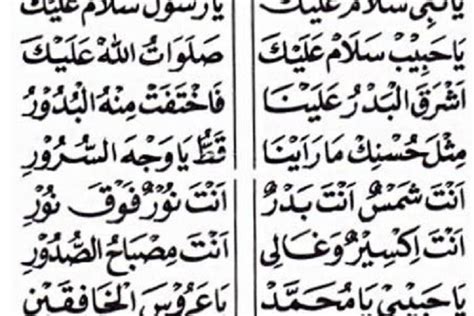 يَا نَبِي سَلَامْ عَلَيْكَ يَا رَسُولْ سَلَامْ عَلَيْكَ
يَا حَبِيْبْ سَلَامْ عَلَيْكَ صَلَوَاتُ اللهْ عَلَيْكَ
اَشْرَقَ الْبَدْرُ عَلَيْنَا فَاخْتَفَتْ مِنْهُ الْبُدُوْرُ
مِثْلَ حُسْنِكْ مَا رَاَيْنَا قَطُّ يَا وَجْهَ السُّرُوْرِ
اَنْتَ شَمْسٌ اَنْتَ بَدْرٌ اَنْتَ نُوْرٌ فَوْقَ نُوْرٍ
اَنْتَ اِكْسِيْرٌ وَغَالِى اَنْتَ مِصْبَاحُ الصُّدُوْرِ
يَا حَبِيْبِيْ يَا مُحَمَّدْ يَا عَرُوْسَ الْخَافِقَيْنِ